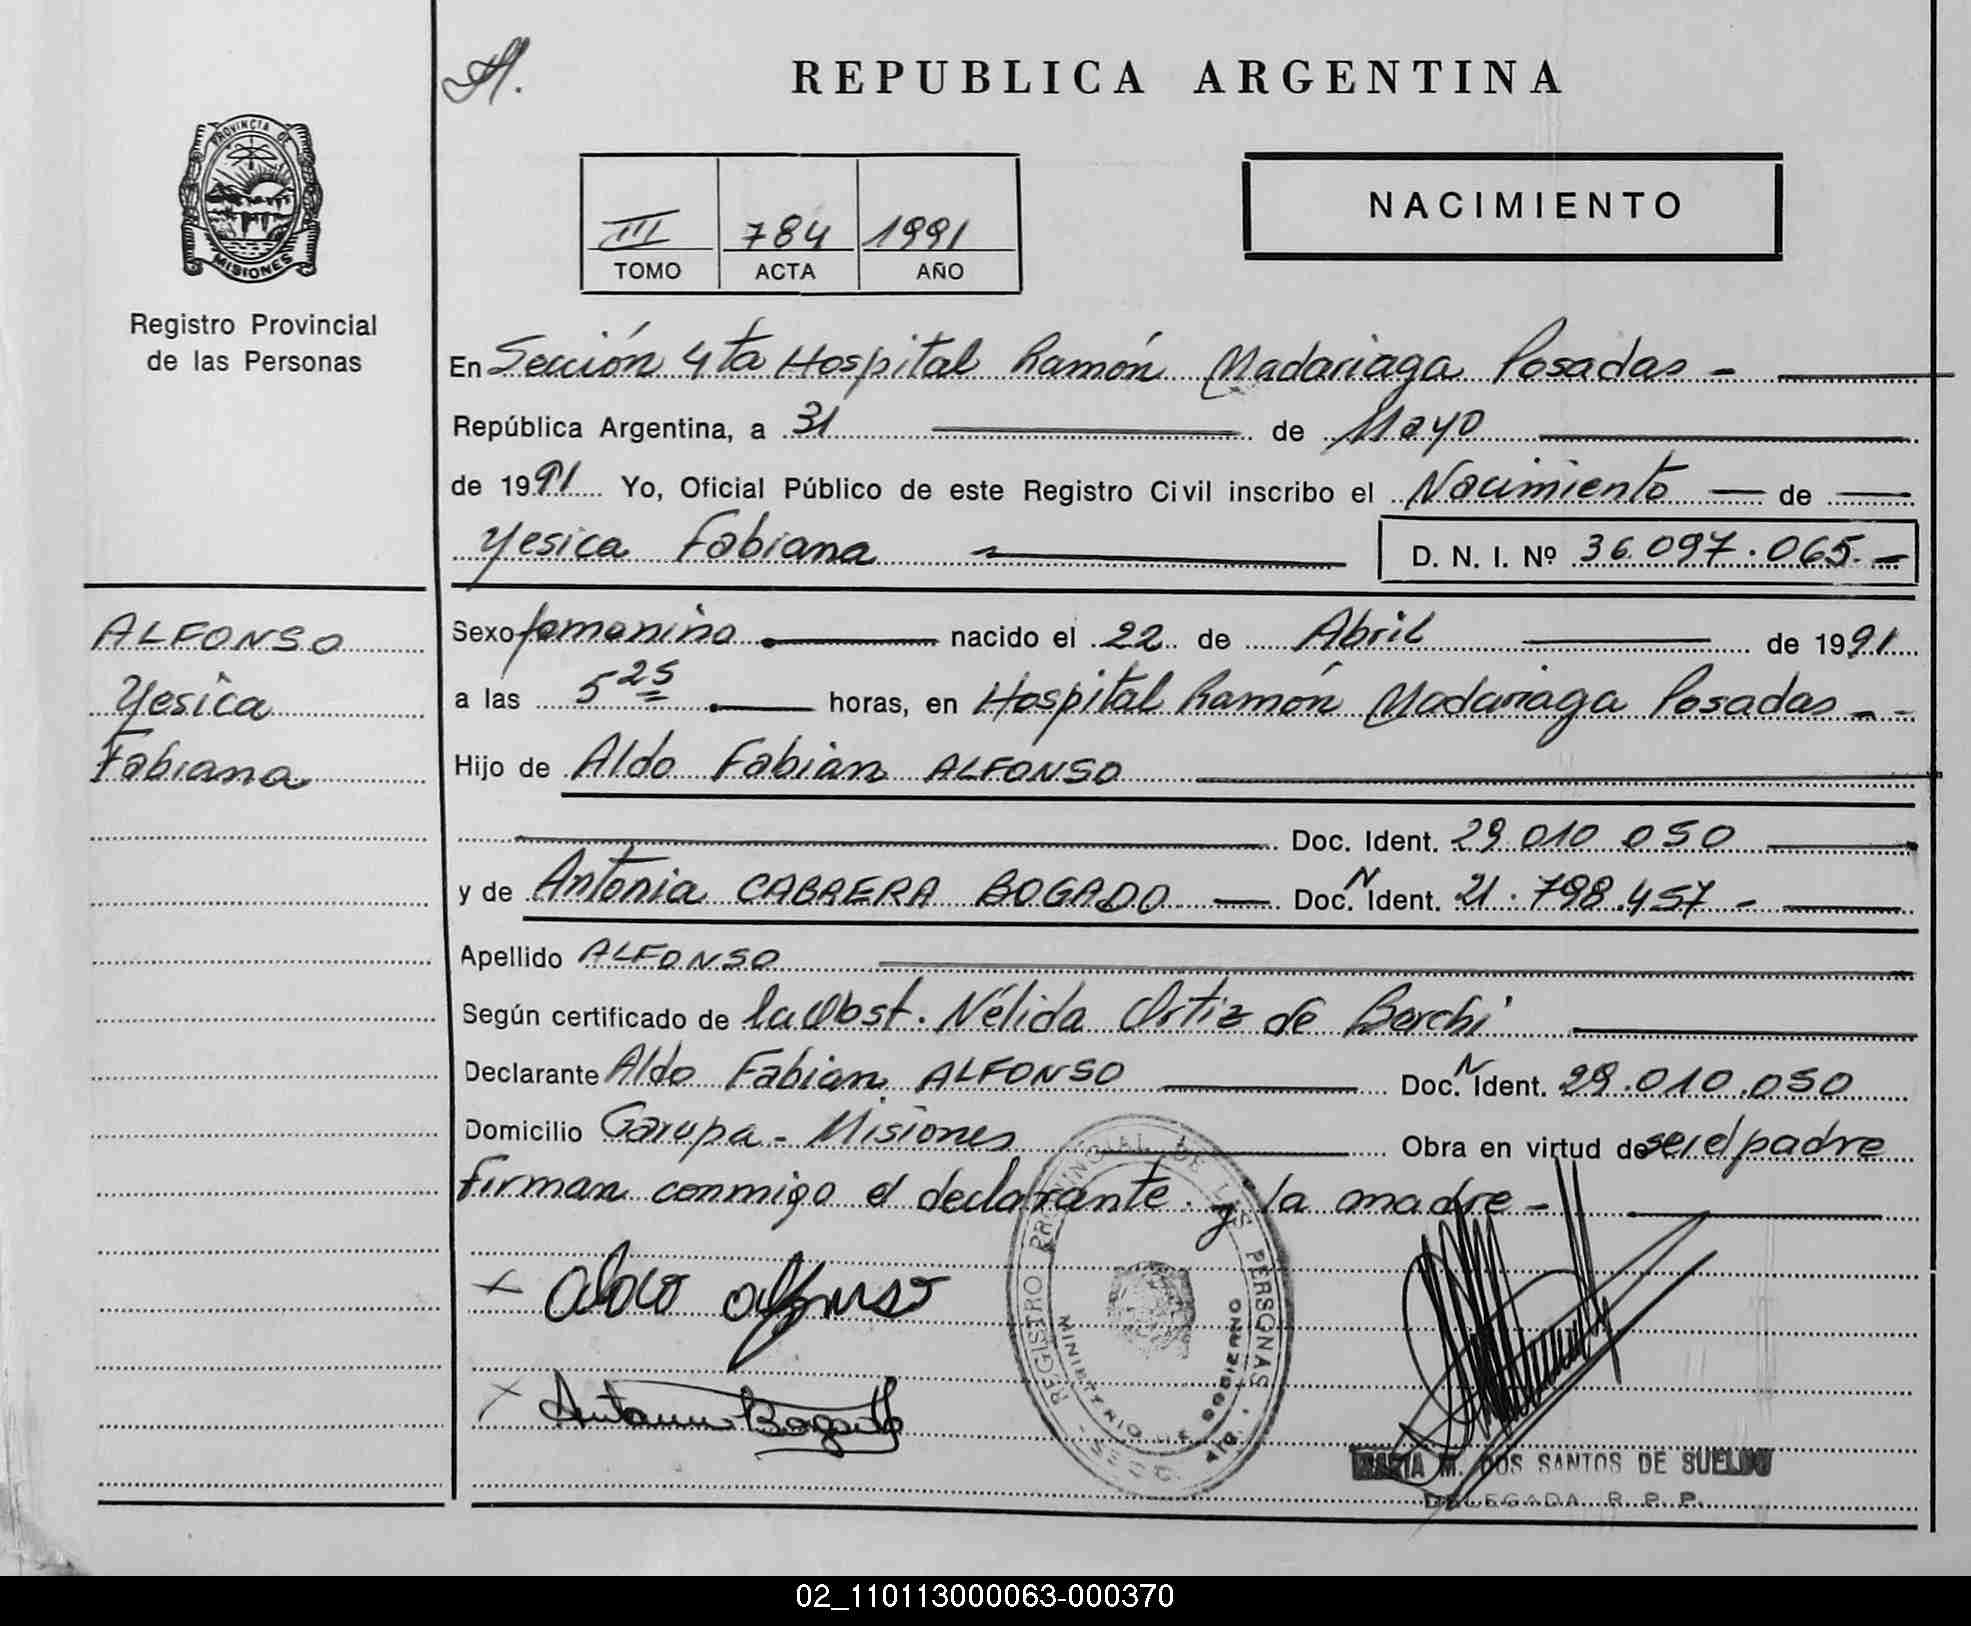 REPUBLICA ARGENTINA
PROVINCIA DE
MISIONES
Registro Provincial
de las Personas
III 784 1991
TOMO ACTA AÑO
NACIMIENTO
En Sección 4ta Hospital Ramón Madariaga Posadas -
República Argentina, a 31 de Mayo
de 1991 Yo, Oficial Público de este Registro Civil inscribo el Nacimiento de
Yesica Fabiana D. N. I. Nº 36.097.065.-
ALFONSO
Yesica
Fabiana
Sexo femenino nacido el 22 de Abril de 1991
a las 5 25 horas, en Hospital Ramón Madariaga Posadas - -
Hijo de Aldo Fabian ALFONSO
Doc. Ident. 29 010 050
y de Antonia CABRERA BOGADO Doc. N Ident. 21.798.457 -
Apellido ALFONSO
Según certificado de la Obst. Nélida Ortiz de Borchi
Declarante Aldo Fabian ALFONSO Doc. N Ident. 29.010.050
Domicilio Garupa - Misiones Obra en virtud de ser el padre
firman conmigo el declarante y la madre -
x Aldo Alfonso
x Antonia Bogado
REGISTRO PROVINCIAL DE LAS PERSONAS
MARIA M. DOS SANTOS DE SUELDO
DELEGADA R. P. P.
02_110113000063-000370